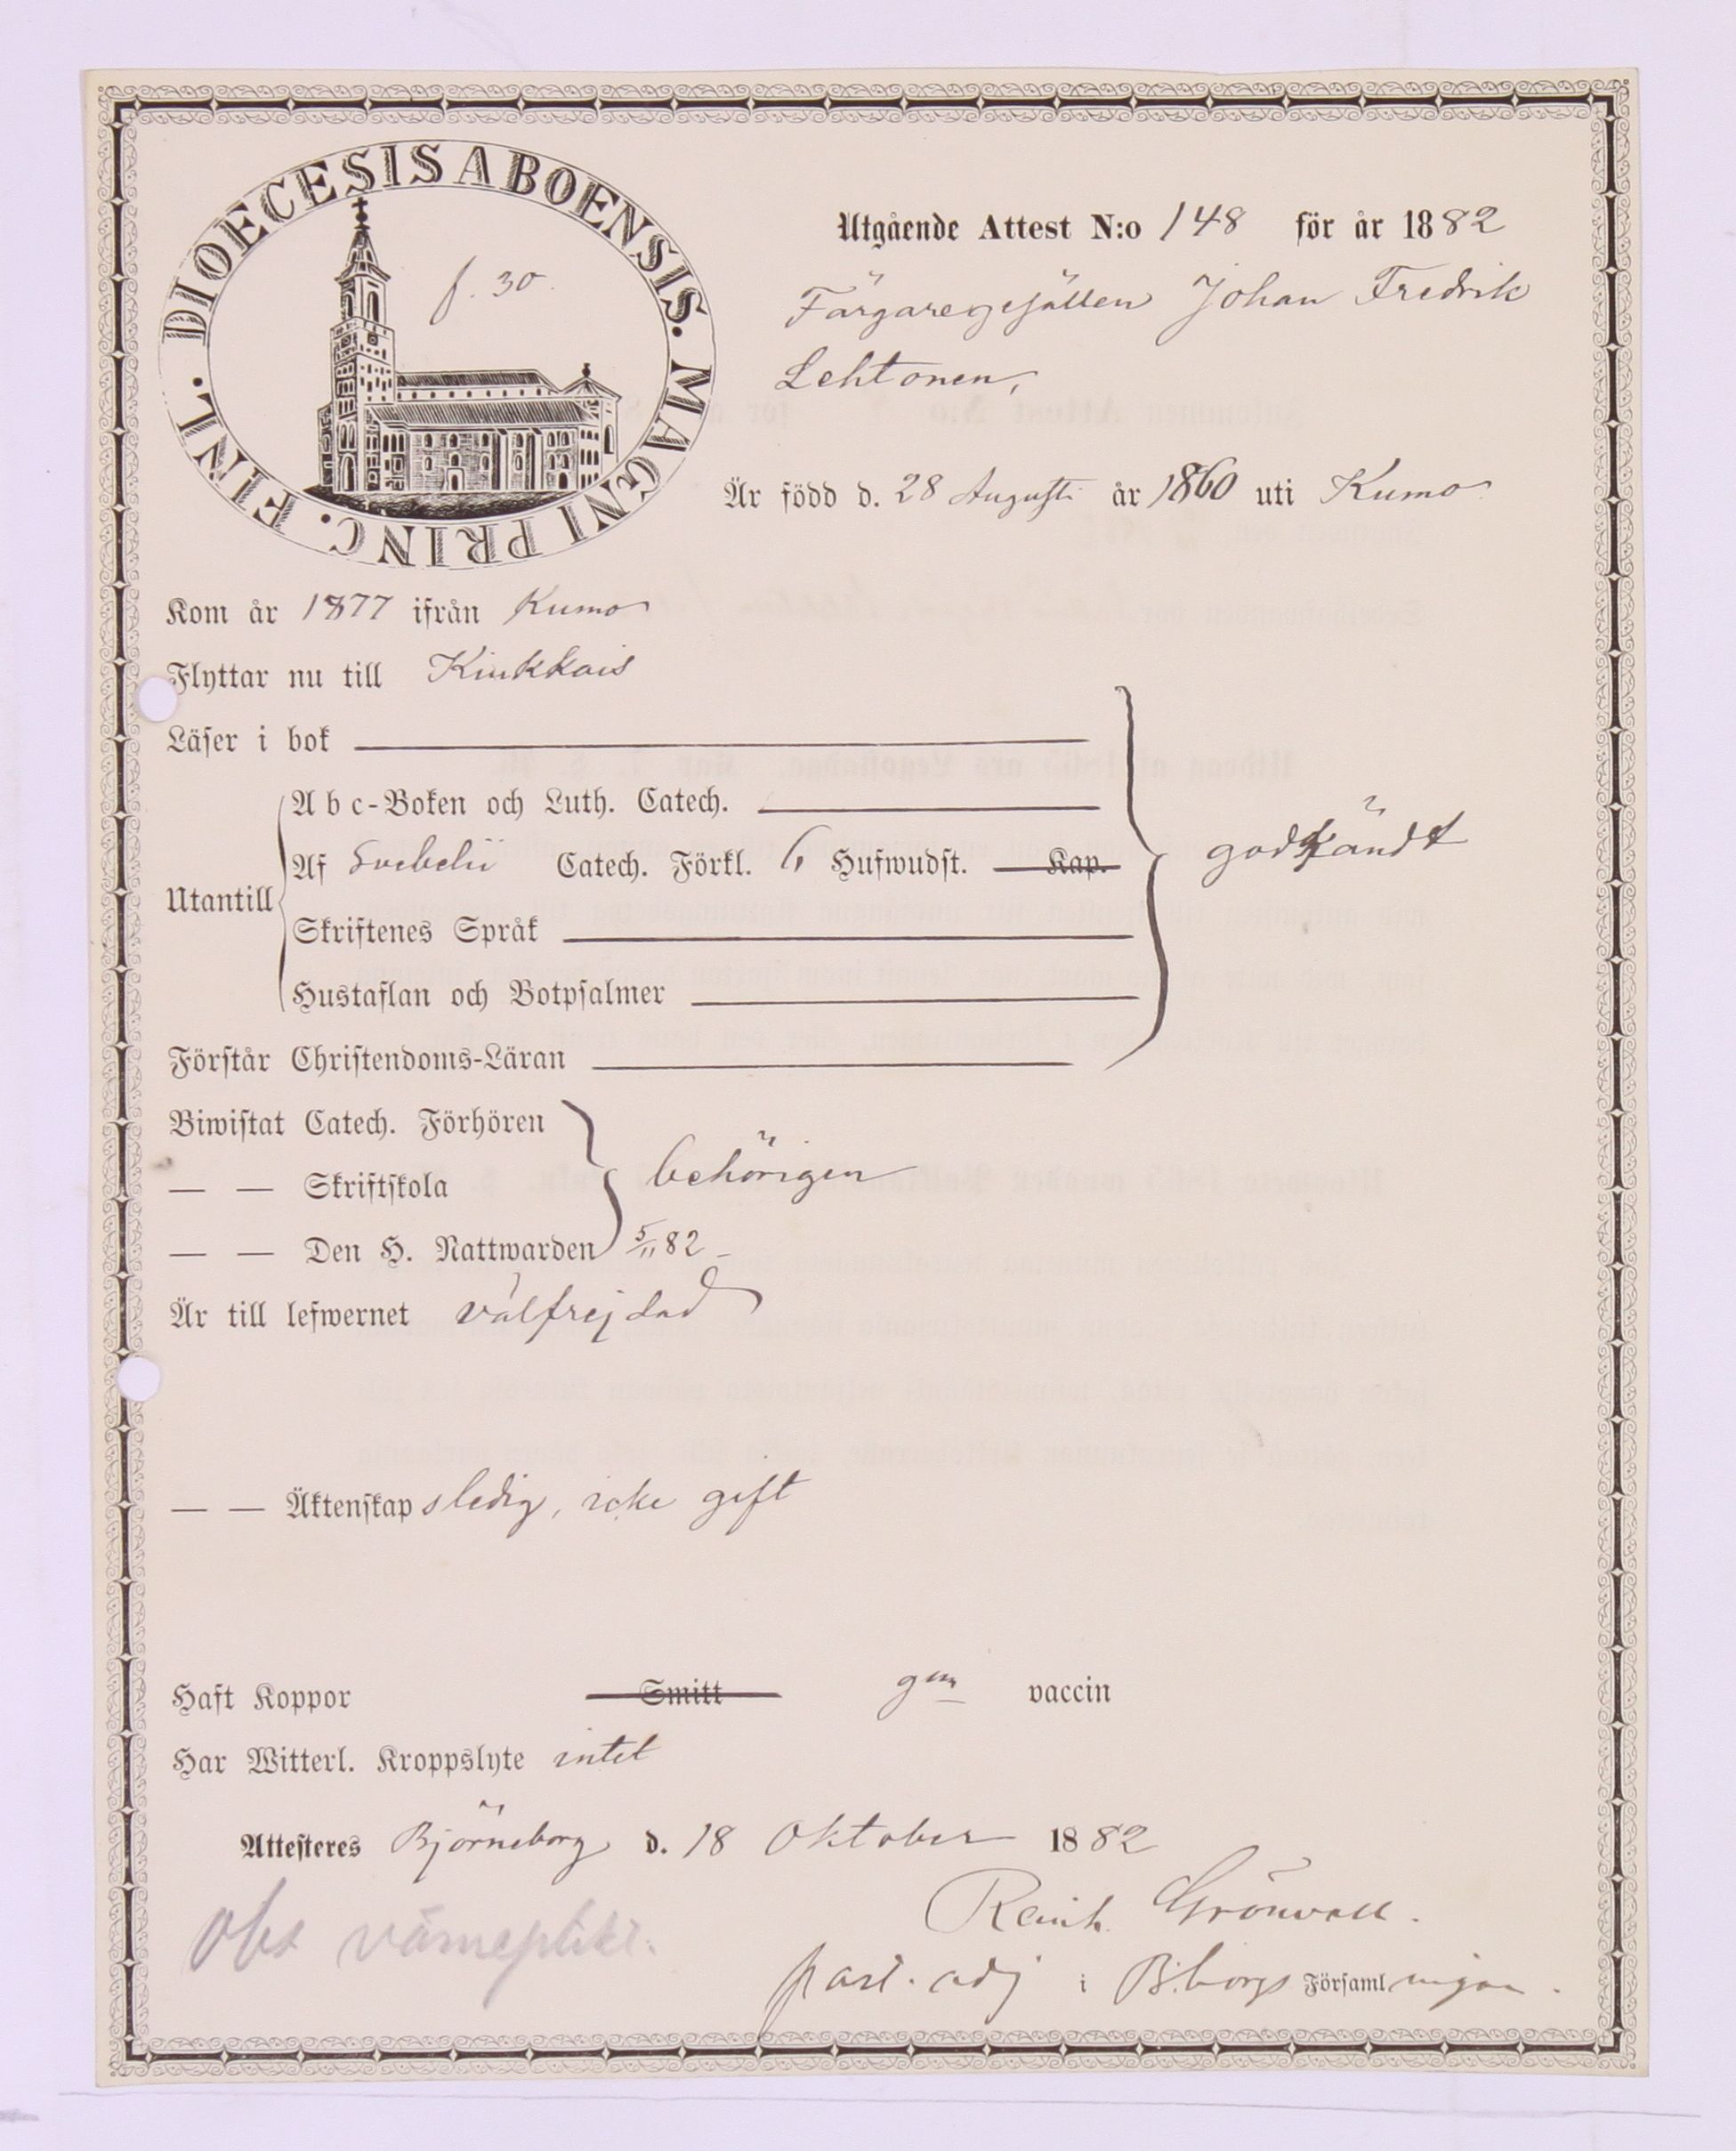 DIOECESIS ABOENSIS. MAGNI PRINC. FINL.
f. 30.
Utgående Attest N:o 148 för år 1882
Färgaregesällen Johan Fredrik
Lehtonen,
Är född d. 28 Augusti år 1860 uti Kumo
Kom år 1877 ifrån Kumo
Flyttar nu till Kiukkais
Läser i bok
Utantill
A b c-Boken och Luth. Catech.
Af Svebelii Catech. Förkl. 6 Hufwudst. Kap.
Skriftenes Språk
Hustaflan och Botpsalmer
godkändt
Förstår Christendoms-Läran
Biwistat Catech. Förhören
— — Skriftskola behörigen
— — Den H. Nattwarden 5/11 82 –
Är till lefwernet välfrejdad
— — Äktenskap sledig, icke gift
Haft Koppor Smitt gm vaccin
Har Witterl. Kroppslyte intet
Attesteres Björneborg d. 18 Oktober 1882
Reinh. Grönvall.
Obs värneplikt.
past. adj i B:borgs Församlingen.